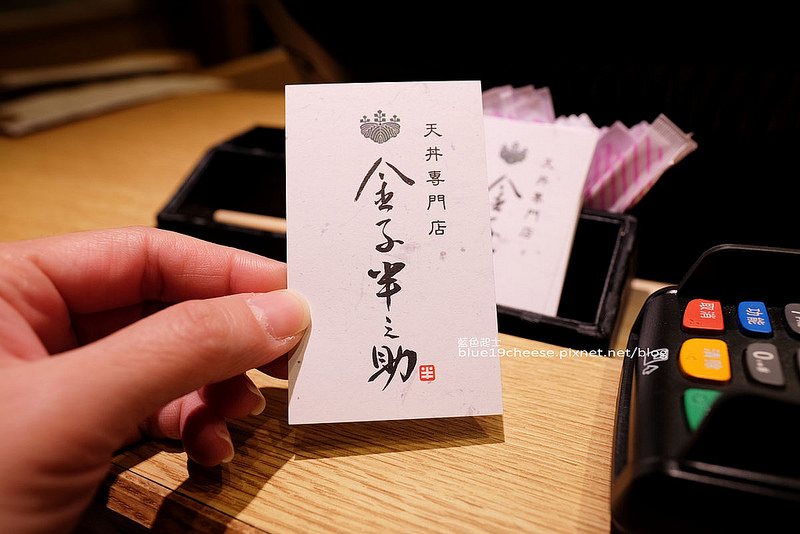 天丼専門店
金子半之助
半
天丼専門店
金
藍色起士
blue19cheese.pixnet.net/blog
取消
功能
清除
0